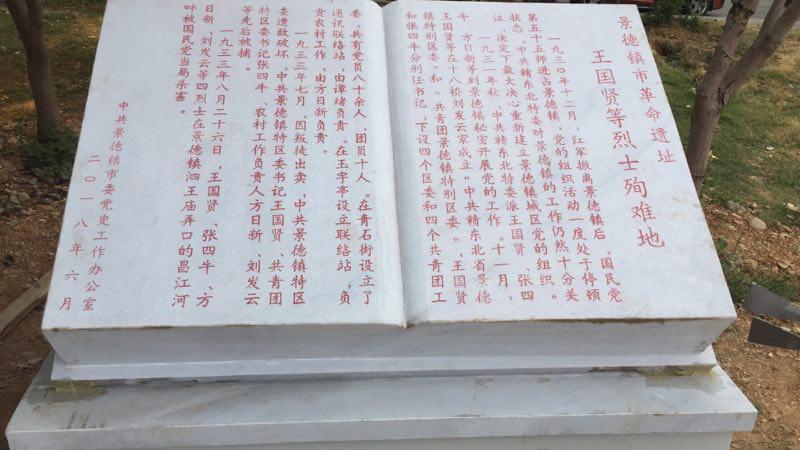 景德镇市革命遗址
王国贤等烈士殉难地
一九三〇年十二月，红军撤离景德镇后，国民党
第五十五师进占景德镇，党的组织活动一度处于停顿
状态。中共赣东北特委对景德镇的工作仍然十分关
注，决定下最大决心重新建立景德镇城区党的组织。
一九三一年秋，中共赣东北特委派王国贤、张四
牛、方日新等到景德镇秘密开展党的工作。十一月，
王国贤等在十八桥刘发云家成立“中共赣东北省景德
镇特别区委”和“共青团景德镇特别区委”，王国贤
和张四牛分别任书记，下设四个区委和四个共青团工
委，共有党员八十余人，团员十人。在青石街设立了
通讯联络站，由谭绪负责。在王字亭设立联络站，负
责农村工作，由方日新负责。
一九三三年七月，因叛徒出卖，中共景德镇特区
委遭敌破坏，中共景德镇特区委书记王国贤、共青团
特区委书记张四牛、农村工作负责人方日新、刘发云
等先后被捕。
一九三三年八月二十六日，王国贤、张四牛、方
日新、刘发云等四烈士在景德镇泗王庙弄口的昌江河
畔被国民党当局杀害。
中共景德镇市委党史工作办公室
二〇一八年六月